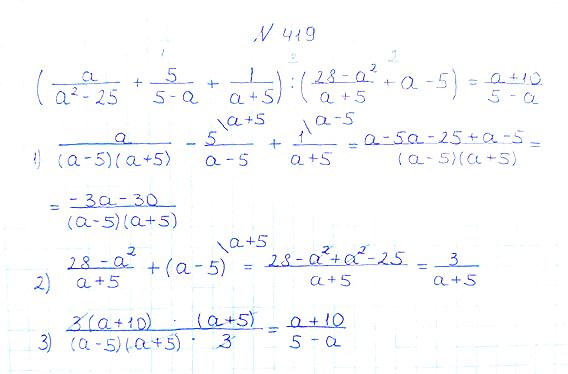 N 419
1 3 2
( a/(a² - 25) + 5/(5 - a) + 1/(a + 5) ) : ( (28 - a²)/(a + 5) + a - 5 ) = (a + 10)/(5 - a)
1) a/((a - 5)(a + 5)) - 5\a+5/(a - 5) + 1\a-5/(a + 5) = (a - 5a - 25 + a - 5)/((a - 5)(a + 5)) =
= (-3a - 30)/((a - 5)(a + 5))
2) (28 - a²)/(a + 5) + (a - 5)\a+5 = (28 - a² + a² - 25)/(a + 5) = 3/(a + 5)
3) (3(a + 10) · (a + 5))/((a - 5)(a + 5) · 3) = (a + 10)/(5 - a)